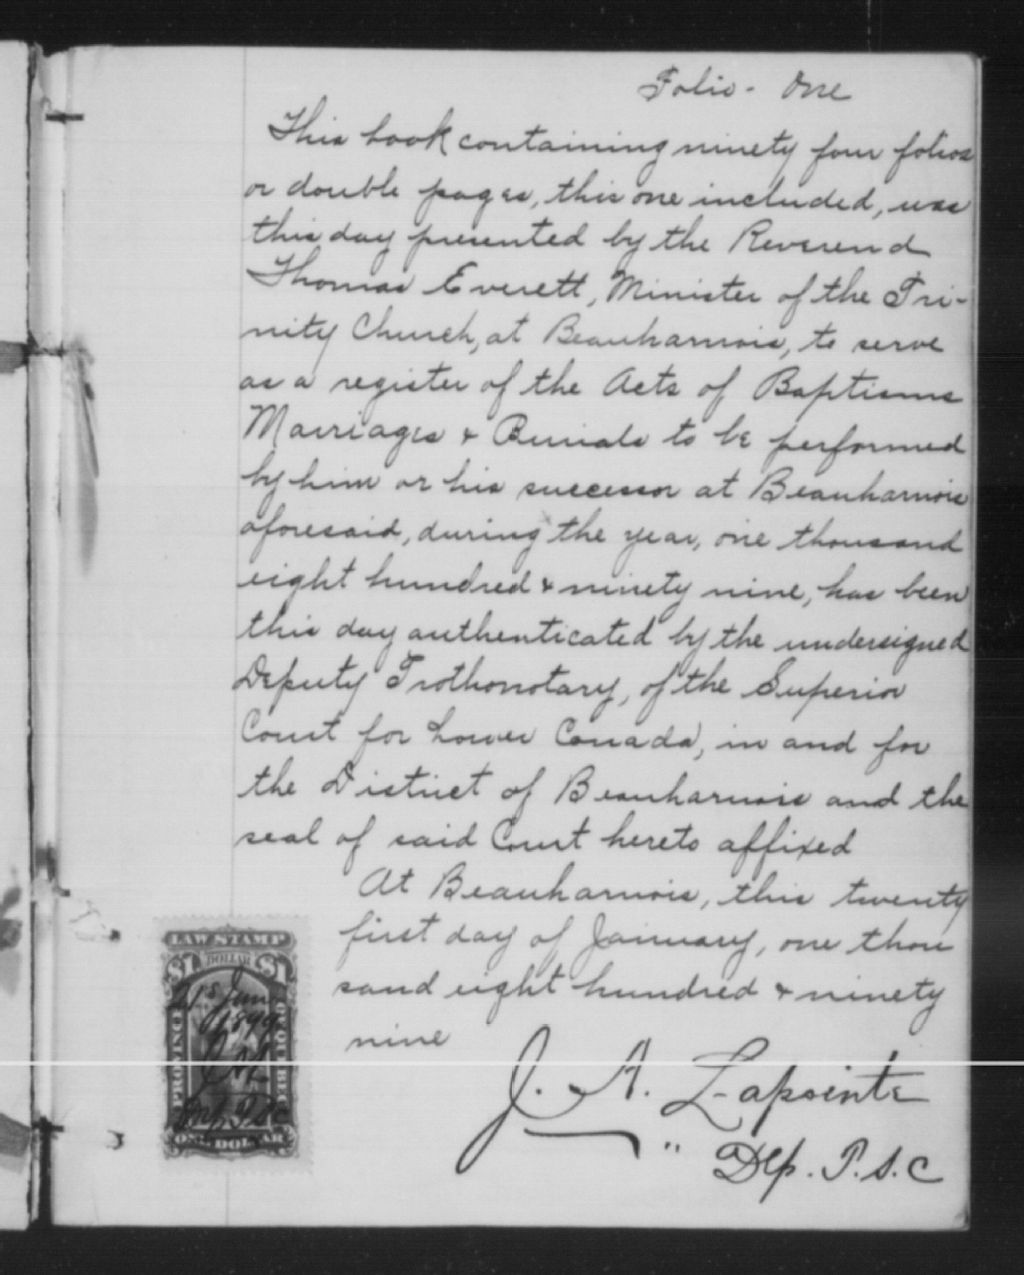 Folio - One
This book containing ninety four folios
or double pages, this one included, was
this day presented by the Reverend
Thomas Everett, Minister of the Tri-
nity Church, at Beauharnois, to serve
as a register of the Acts of Baptisms
Marriages & Burials to be performed
by him or his successor at Beauharnois
aforesaid, during the year, one thousand
eight hundred & ninety nine, has been
this day authenticated by the undersigned
Deputy Prothonotary, of the Superior
Court for Lower Canada, in and for
the District of Beauharnois and the
seal of said Court hereto affixed
At Beauharnois, this twenty
first day of January, one thou
sand eight hundred & ninety
nine
J. A. Lapointe
Dep. P. S. C
LAW STAMP
$1 DOLLAR $1
PROVINCE OF QUEBEC
21st Jany
1899
ONE DOLLAR